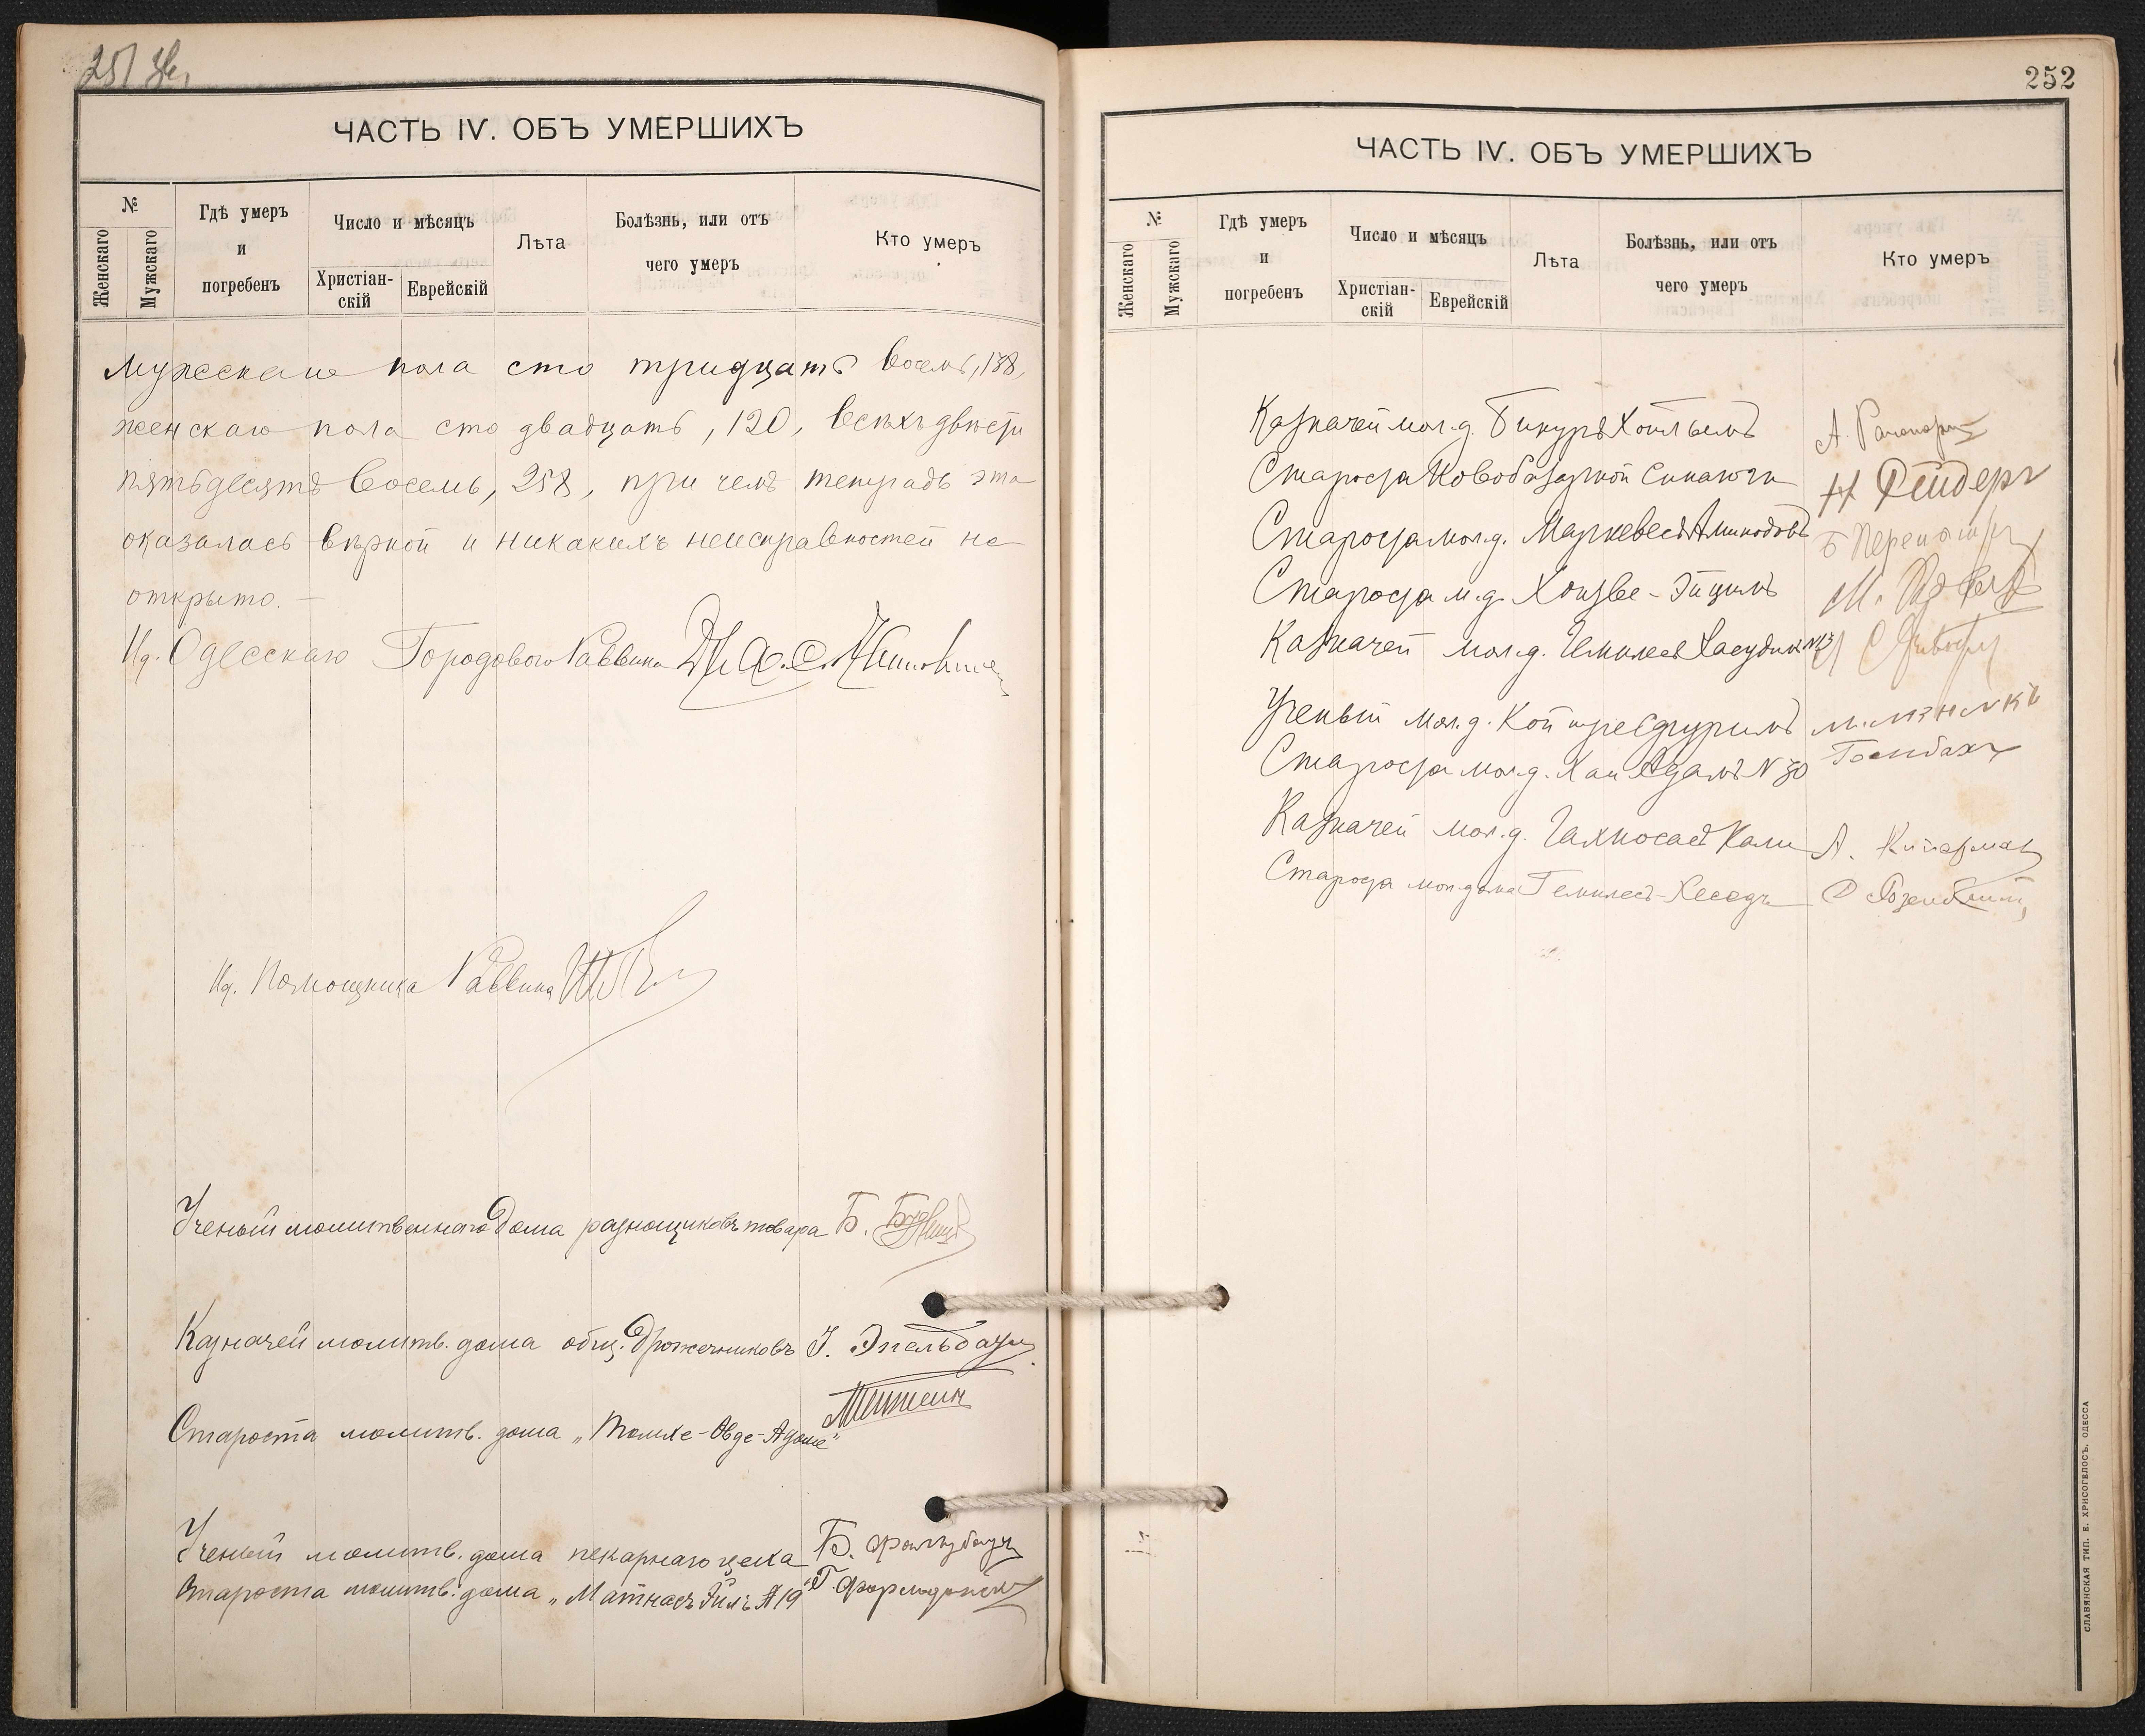 251
ЧАСТЬ IV. ОБЪ УМЕРШИХЪ
№
Женскаго
Мужскаго
Гдѣ умеръ
и
погребенъ
Число и мѣсяцъ
Христіан-
скій
Еврейскій
Лѣта
Болѣзнь, или отъ
чего умеръ
Кто умеръ
мужскаго пола сто тридцать восемь, 138,
женскаго пола сто двадцать, 120, всѣхъ двѣсти
пятьдесятъ восемь, 258, при чемъ тетрадь эта
оказалась вѣрной и никакихъ неисправностей не
открыто. —
И.д. Одесскаго Городового Раввина
И.д. Помощника Раввина
Ученый молитвеннаго дома разнощиковъ товара Б.
Казначей молитв. дома общ. Дрожечниковъ І. Эпельбаум
Староста молитв. дома „Томхе-Авде-Адоме"
Ученый молитв. дома пекарнаго цеха Б.
Староста молитв. дома „Матнасъ №19" Г.
252
ЧАСТЬ IV. ОБЪ УМЕРШИХЪ
№
Женскаго
Мужскаго
Гдѣ умеръ
и
погребенъ
Число и мѣсяцъ
Христіан-
скій
Еврейскій
Лѣта
Болѣзнь, или отъ
чего умеръ
Кто умеръ
Казначей мол.д. Бикуръ Хойлымъ А. Рапопортъ
Староста Новобазарной Синагоги Н Рейдеръ
Староста мол.д. Б
Староста м.д. М.
Казначей мол.д.
Ученый мол.д.
Староста мол.д. Хаи Адамъ №30
Казначей мол.д. Гахносас Кале А.
Староста мол. дома Гемилес-Хеседъ
СЛАВЯНСКАЯ ТИП. Е. ХРИСОГЕЛОСЪ. ОДЕССА